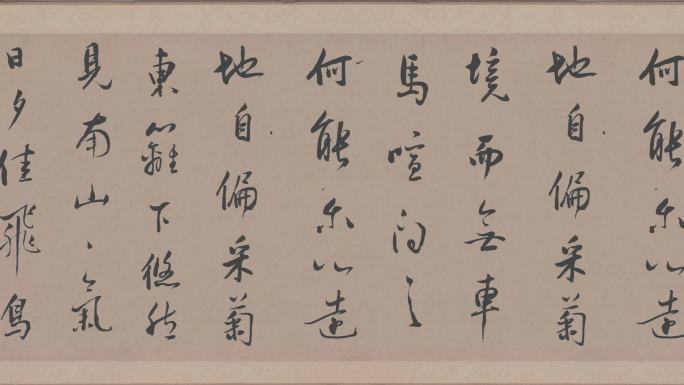 何能尔心遠
地自偏采菊
境而無車
馬喧问君
何能尔心遠
地自偏采菊
東籬下悠然
見南山〻氣
日夕佳飛鳥